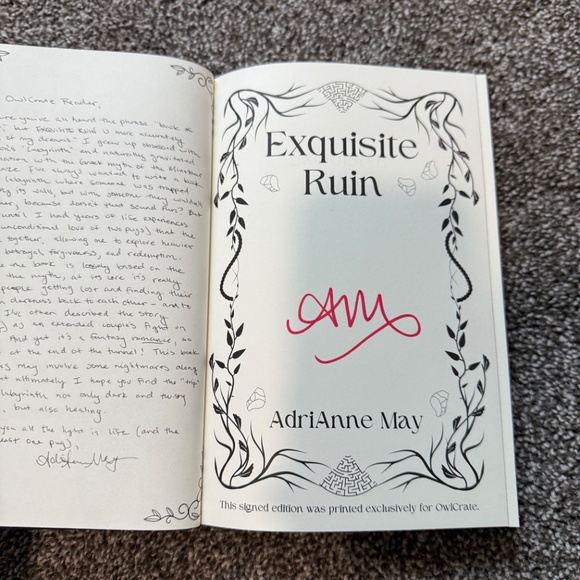 OwlCrate Reader,
you've all heard the phrase "book of
, but EXQUISITE RUIN is more accurately
of my dreams. I grew up obsessed with
"Labyrinth" and naturally gravitated
with the Greek myth of the Minotaur
I've always wanted to write a book
labyrinth where someone was trapped
its walls, but with someone they wouldn't
because doesn't that sound fun? But
until I had years of life experiences
unconditional love of two pugs) that the
together, allowing me to explore heavier
betrayal, forgiveness, and redemption.
the book is loosely based on the
the myth, at its core it's really
people getting lost and finding their
darkness back to each other – and to
I've often described the story
) as an extended couple's fight on
And yet it's a fantasy romance, so
at the end of the tunnel! This book
may involve some nightmares along
but ultimately I hope you find the "trip"
labyrinth not only dark and twisty
, but also healing.
you all the light in life (and the
least one pug),
AdriAnne May
Exquisite
Ruin
AM
AdriAnne May
This signed edition was printed exclusively for OwlCrate.